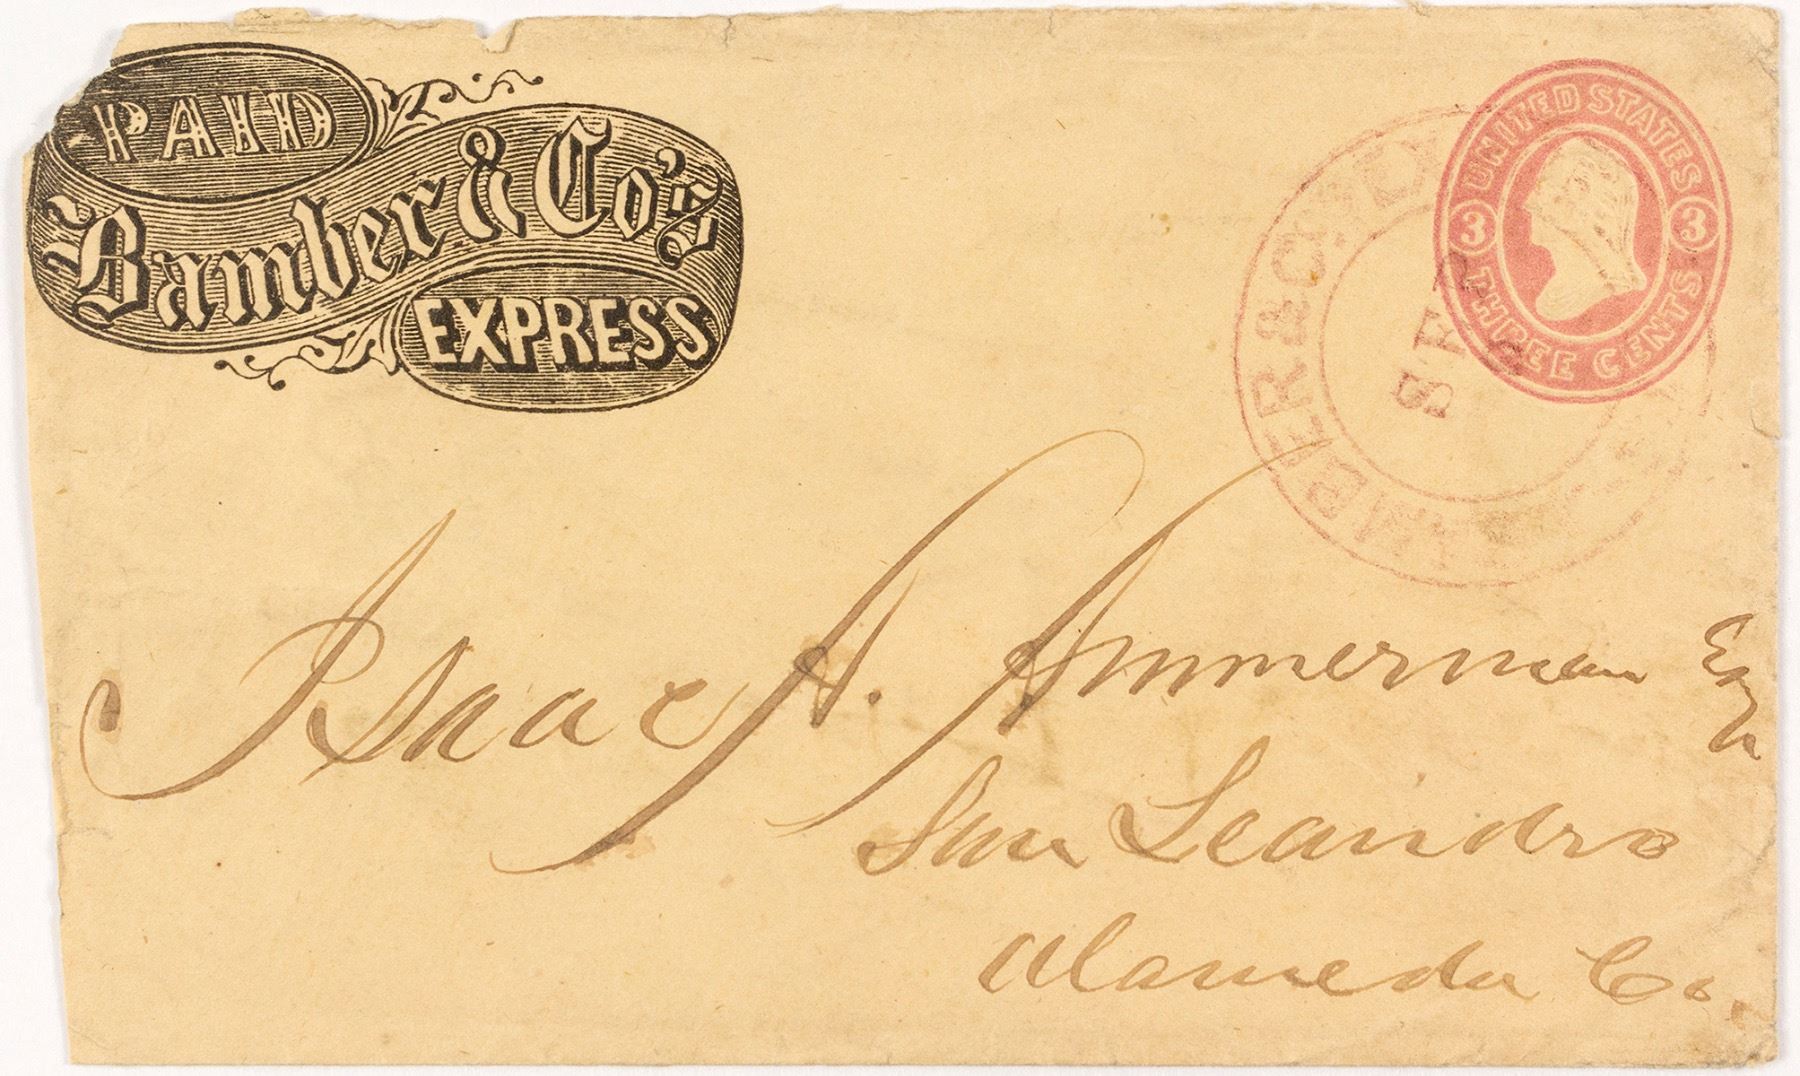 PAID
Bamber & Co's
EXPRESS
UNITED STATES
3 3
THREE CENTS
BAMBER & CO'S
SEP
Isaac A. Ammerman Esqr
San Leandro
Alameda Co.